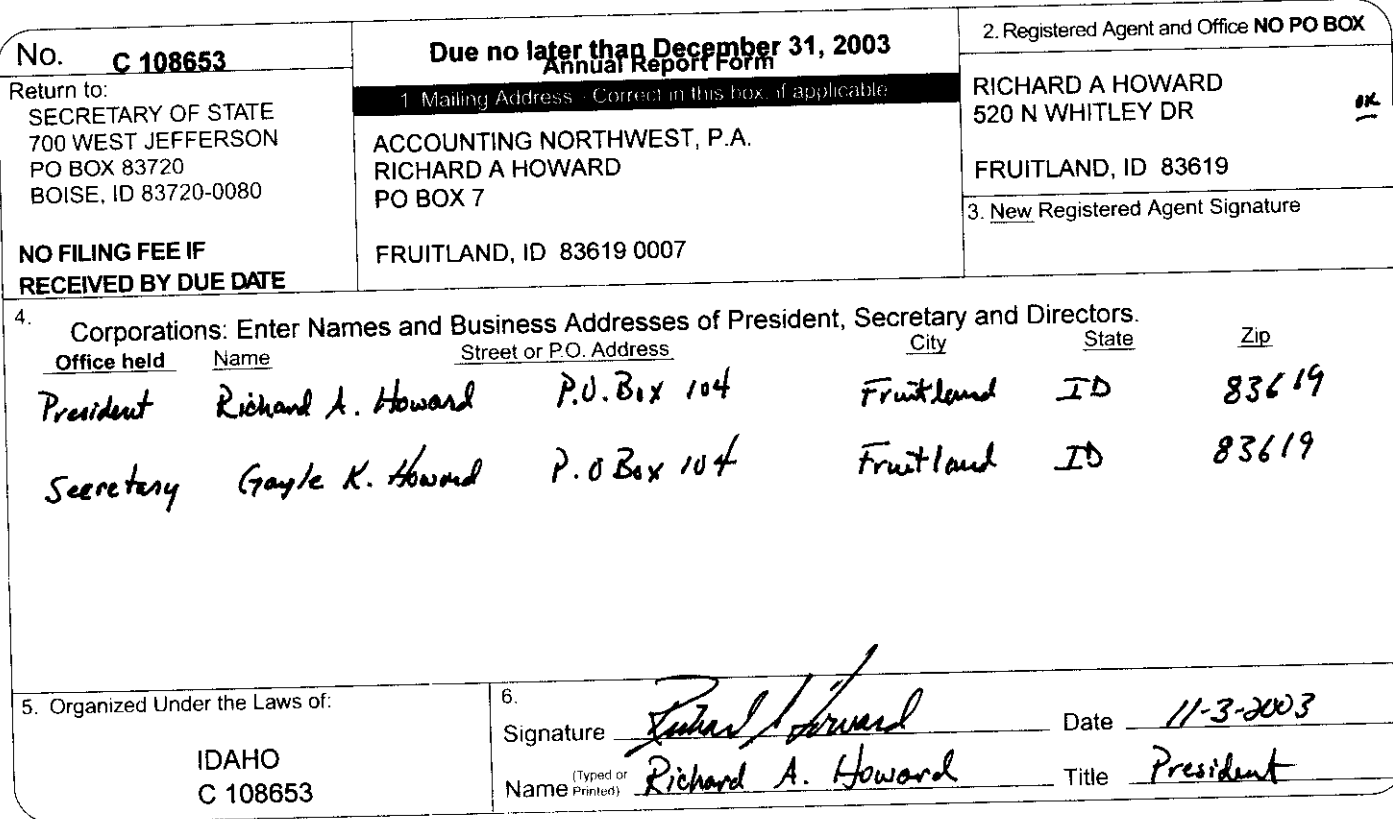 No. C 108653
Return to:
SECRETARY OF STATE
700 WEST JEFFERSON
PO BOX 83720
BOISE, ID 83720-0080
NO FILING FEE IF
RECEIVED BY DUE DATE
Due no later than December 31, 2003
Annual Report Form
1. Mailing Address - Correct in this box, if applicable
ACCOUNTING NORTHWEST, P.A.
RICHARD A HOWARD
PO BOX 7
FRUITLAND, ID 83619 0007
2. Registered Agent and Office NO PO BOX
RICHARD A HOWARD
520 N WHITLEY DR
OK
FRUITLAND, ID 83619
3. New Registered Agent Signature
4. Corporations: Enter Names and Business Addresses of President, Secretary and Directors.
Office held Name Street or P.O. Address City State Zip
President Richard A. Howard P.O. Box 104 Fruitland ID 83619
Secretary Gayle K. Howard P.O Box 104 Fruitland ID 83619
5. Organized Under the Laws of:
IDAHO
C 108653
6.
Signature Richard A Howard Date 11-3-2003
Name (Typed or Printed) Richard A. Howard Title President